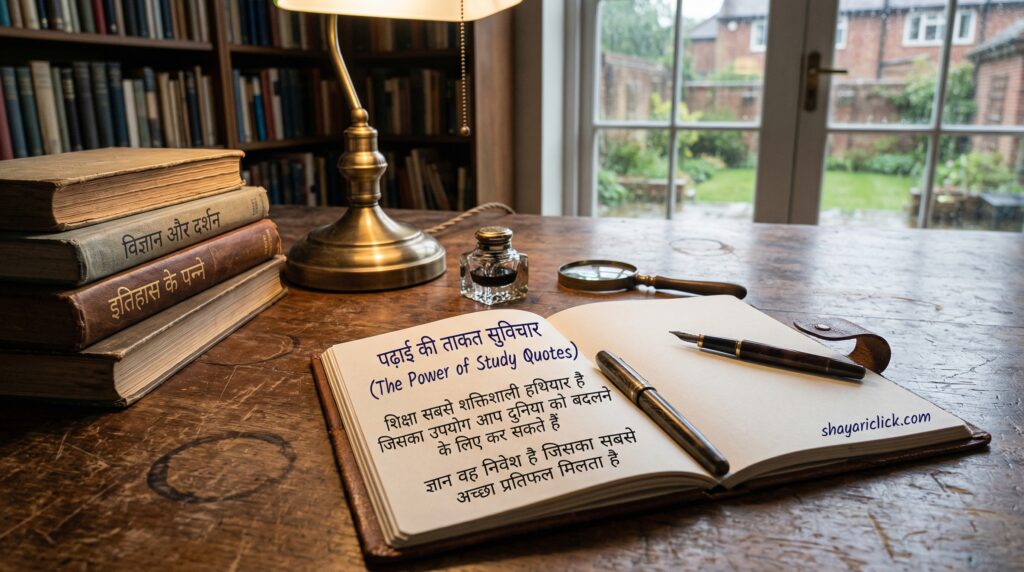 विज्ञान और दर्शन
इतिहास के पन्ने
पढ़ाई की ताकत सुविचार
(The Power of Study Quotes)
शिक्षा सबसे शक्तिशाली हथियार है
जिसका उपयोग आप दुनिया को बदलने
के लिए कर सकते हैं
ज्ञान वह निवेश है जिसका सबसे
अच्छा प्रतिफल मिलता है
shayariclick.com